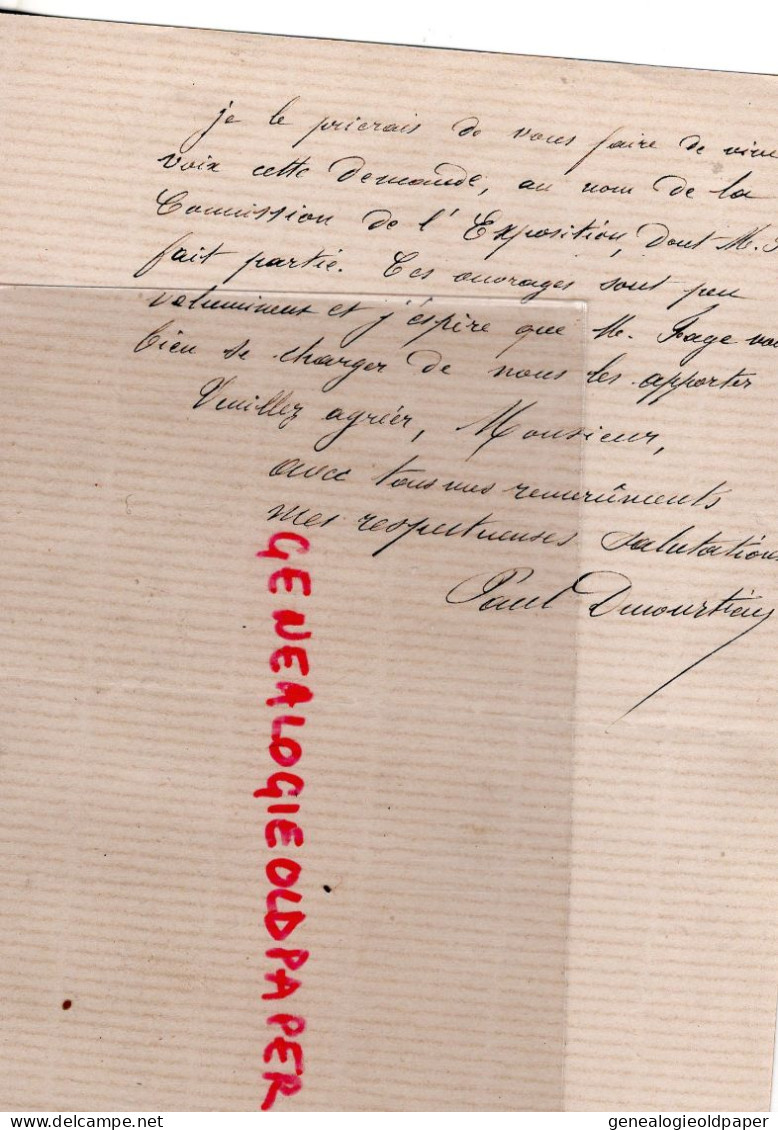 je le prierais de vous faire de vive
voix cette demande, au nom de la
Commission de l'Exposition, dont M.
fait partie. Ces ouvrages sont peu
volumineux et j'espère que M. Fage
bien se charger de nous les apporter
Veuillez agréer, Monsieur,
avec tous mes remerciments
mes respectueuses salutations
Paul Ducourtieux
GENEALOGIEOLDPAPER
delcampe.net
genealogieoldpaper